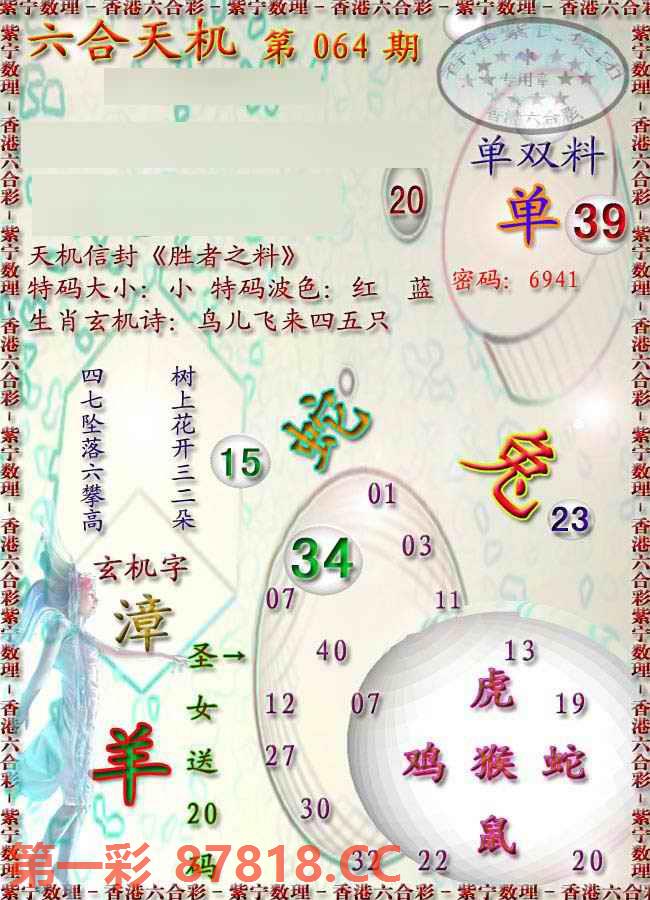 紫宁数理－香港六合彩－紫宁数理－香港六合彩－紫宁数理－香港六合彩
六合天机 第 064 期
专用章
香港六合彩
单双料
20
单 39
天机信封《胜者之料》
特码大小：小 特码波色：红 蓝
密码：6941
生肖玄机诗：鸟儿飞来四五只
树上花开三二朵
四七坠落六攀高
蛇
兔
15
23
01
34
03
玄机字
漳
07
11
圣女送20码
→
40
13
虎
12
07
19
羊
27
鸡 猴 蛇
30
鼠
32
22
20
第一彩 87818.CC
紫宁数理－香港六合彩－紫宁数理－香港六合彩－紫宁数理－香港六合彩